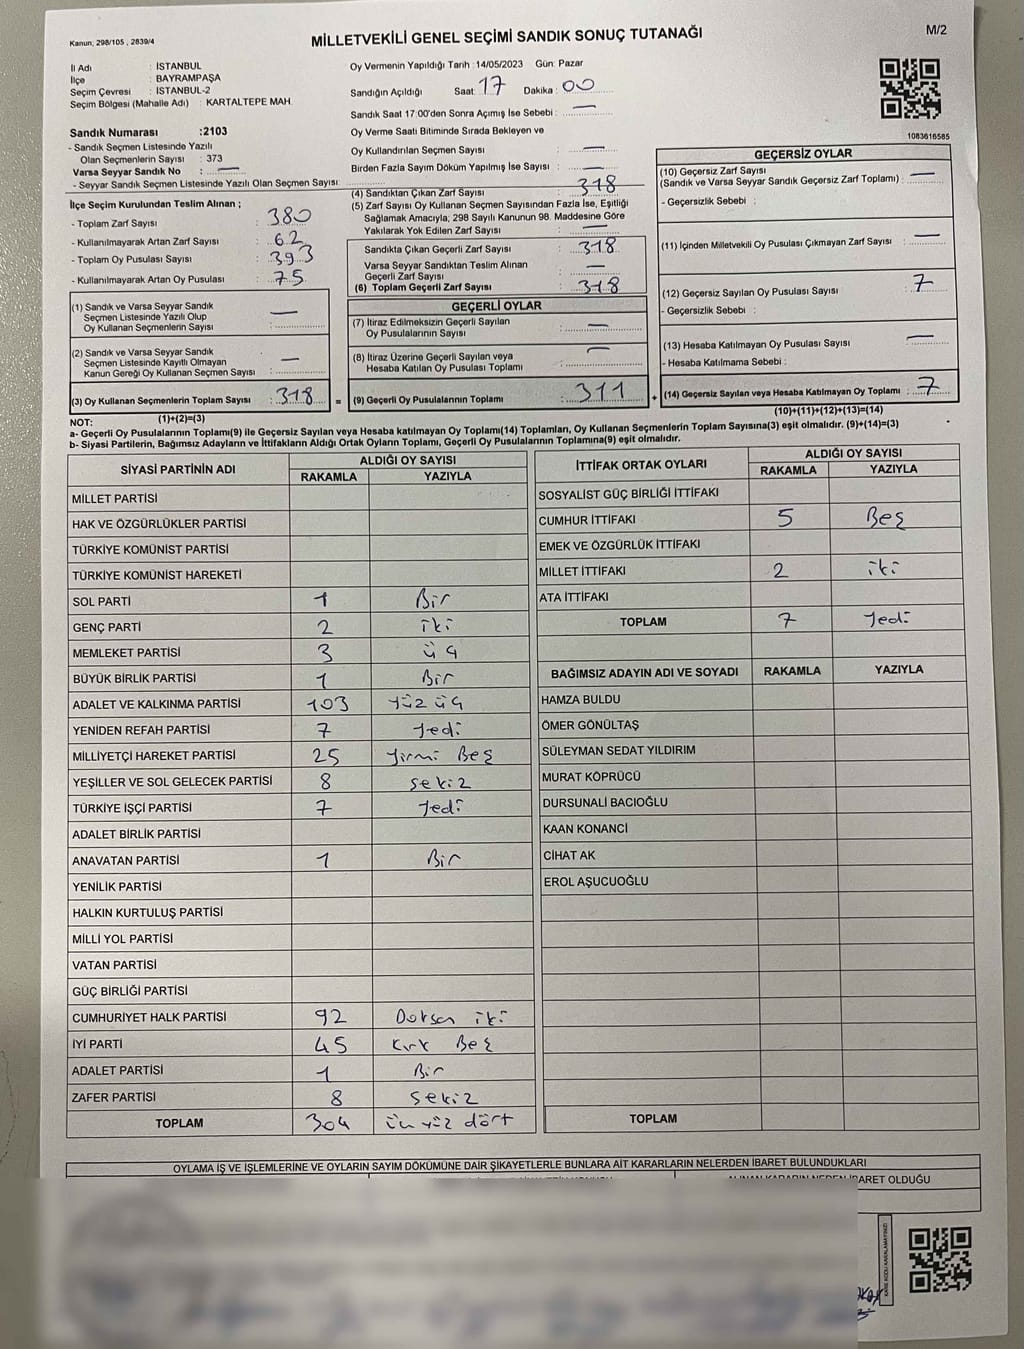 Kanun; 298/105 , 2839/4
MİLLETVEKİLİ GENEL SEÇİMİ SANDIK SONUÇ TUTANAĞI
M/2
İl Adı : İSTANBUL
İlçe : BAYRAMPAŞA
Seçim Çevresi : İSTANBUL-2
Seçim Bölgesi (Mahalle Adı) : KARTALTEPE MAH.
Sandık Numarası :2103
- Sandık Seçmen Listesinde Yazılı
Olan Seçmenlerin Sayısı : 373
Varsa Seyyar Sandık No : —
- Seyyar Sandık Seçmen Listesinde Yazılı Olan Seçmen Sayısı:
Oy Vermenin Yapıldığı Tarih :14/05/2023 Gün: Pazar
Sandığın Açıldığı Saat: 17 Dakika : 00
Sandık Saat 17:00'den Sonra Açılmış İse Sebebi : —
Oy Verme Saati Bitiminde Sırada Bekleyen ve
Oy Kullandırılan Seçmen Sayısı : —
Birden Fazla Sayım Döküm Yapılmış İse Sayısı : —
1083616585
İlçe Seçim Kurulundan Teslim Alınan ;
- Toplam Zarf Sayısı : 380
- Kullanılmayarak Artan Zarf Sayısı : 62
- Toplam Oy Pusulası Sayısı : 393
- Kullanılmayarak Artan Oy Pusulası : 75
(1) Sandık ve Varsa Seyyar Sandık
Seçmen Listesinde Yazılı Olup
Oy Kullanan Seçmenlerin Sayısı : —
(2) Sandık ve Varsa Seyyar Sandık
Seçmen Listesinde Kayıtlı Olmayan
Kanun Gereği Oy Kullanan Seçmen Sayısı : —
(3) Oy Kullanan Seçmenlerin Toplam Sayısı : 318 =
(1)+(2)=(3)
(4) Sandıktan Çıkan Zarf Sayısı : 318
(5) Zarf Sayısı Oy Kullanan Seçmen Sayısından Fazla İse, Eşitliği
Sağlamak Amacıyla; 298 Sayılı Kanunun 98. Maddesine Göre
Yakılarak Yok Edilen Zarf Sayısı : —
Sandıkta Çıkan Geçerli Zarf Sayısı : 318
Varsa Seyyar Sandıktan Teslim Alınan
Geçerli Zarf Sayısı : —
(6) Toplam Geçerli Zarf Sayısı : 318
GEÇERLİ OYLAR
(7) İtiraz Edilmeksizin Geçerli Sayılan
Oy Pusulalarının Sayısı : —
(8) İtiraz Üzerine Geçerli Sayılan veya
Hesaba Katılan Oy Pusulası Toplamı : —
(9) Geçerli Oy Pusulalarının Toplamı : 311 +
GEÇERSİZ OYLAR
(10) Geçersiz Zarf Sayısı
(Sandık ve Varsa Seyyar Sandık Geçersiz Zarf Toplamı) : —
- Geçersizlik Sebebi :
(11) İçinden Milletvekili Oy Pusulası Çıkmayan Zarf Sayısı : —
(12) Geçersiz Sayılan Oy Pusulası Sayısı : 7
- Geçersizlik Sebebi :
(13) Hesaba Katılmayan Oy Pusulası Sayısı : —
- Hesaba Katılmama Sebebi :
(14) Geçersiz Sayılan veya Hesaba Katılmayan Oy Toplamı : 7
(10)+(11)+(12)+(13)=(14)
NOT:
a- Geçerli Oy Pusulalarının Toplamı(9) ile Geçersiz Sayılan veya Hesaba katılmayan Oy Toplamı(14) Toplamları, Oy Kullanan Seçmenlerin Toplam Sayısına(3) eşit olmalıdır. (9)+(14)=(3)
b- Siyasi Partilerin, Bağımsız Adayların ve İttifakların Aldığı Ortak Oyların Toplamı, Geçerli Oy Pusulalarının Toplamına(9) eşit olmalıdır.
SİYASİ PARTİNİN ADI ALDIĞI OY SAYISI
RAKAMLA YAZIYLA
MİLLET PARTİSİ
HAK VE ÖZGÜRLÜKLER PARTİSİ
TÜRKİYE KOMÜNİST PARTİSİ
TÜRKİYE KOMÜNİST HAREKETİ
SOL PARTİ 1 Bir
GENÇ PARTİ 2 iki
MEMLEKET PARTİSİ 3 üç
BÜYÜK BİRLİK PARTİSİ 1 Bir
ADALET VE KALKINMA PARTİSİ 103 Yüz üç
YENİDEN REFAH PARTİSİ 7 Yedi
MİLLİYETÇİ HAREKET PARTİSİ 25 Yirmi Beş
YEŞİLLER VE SOL GELECEK PARTİSİ 8 sekiz
TÜRKİYE İŞÇİ PARTİSİ 7 Yedi
ADALET BİRLİK PARTİSİ
ANAVATAN PARTİSİ 1 Bir
YENİLİK PARTİSİ
HALKIN KURTULUŞ PARTİSİ
MİLLİ YOL PARTİSİ
VATAN PARTİSİ
GÜÇ BİRLİĞİ PARTİSİ
CUMHURİYET HALK PARTİSİ 92 Doksan iki
İYİ PARTİ 45 Kırk Beş
ADALET PARTİSİ 1 Bir
ZAFER PARTİSİ 8 sekiz
TOPLAM 304 üç yüz dört
İTTİFAK ORTAK OYLARI ALDIĞI OY SAYISI
RAKAMLA YAZIYLA
SOSYALİST GÜÇ BİRLİĞİ İTTİFAKI
CUMHUR İTTİFAKI 5 Beş
EMEK VE ÖZGÜRLÜK İTTİFAKI
MİLLET İTTİFAKI 2 iki
ATA İTTİFAKI
TOPLAM 7 Yedi
BAĞIMSIZ ADAYIN ADI VE SOYADI RAKAMLA YAZIYLA
HAMZA BULDU
ÖMER GÖNÜLTAŞ
SÜLEYMAN SEDAT YILDIRIM
MURAT KÖPRÜCÜ
DURSUNALİ BACIOĞLU
KAAN KONANCİ
CİHAT AK
EROL AŞUCUOĞLU
TOPLAM
OYLAMA İŞ VE İŞLEMLERİNE VE OYLARIN SAYIM DÖKÜMÜNE DAİR ŞİKAYETLERLE BUNLARA AİT KARARLARIN NELERDEN İBARET BULUNDUKLARI
OLDUĞU